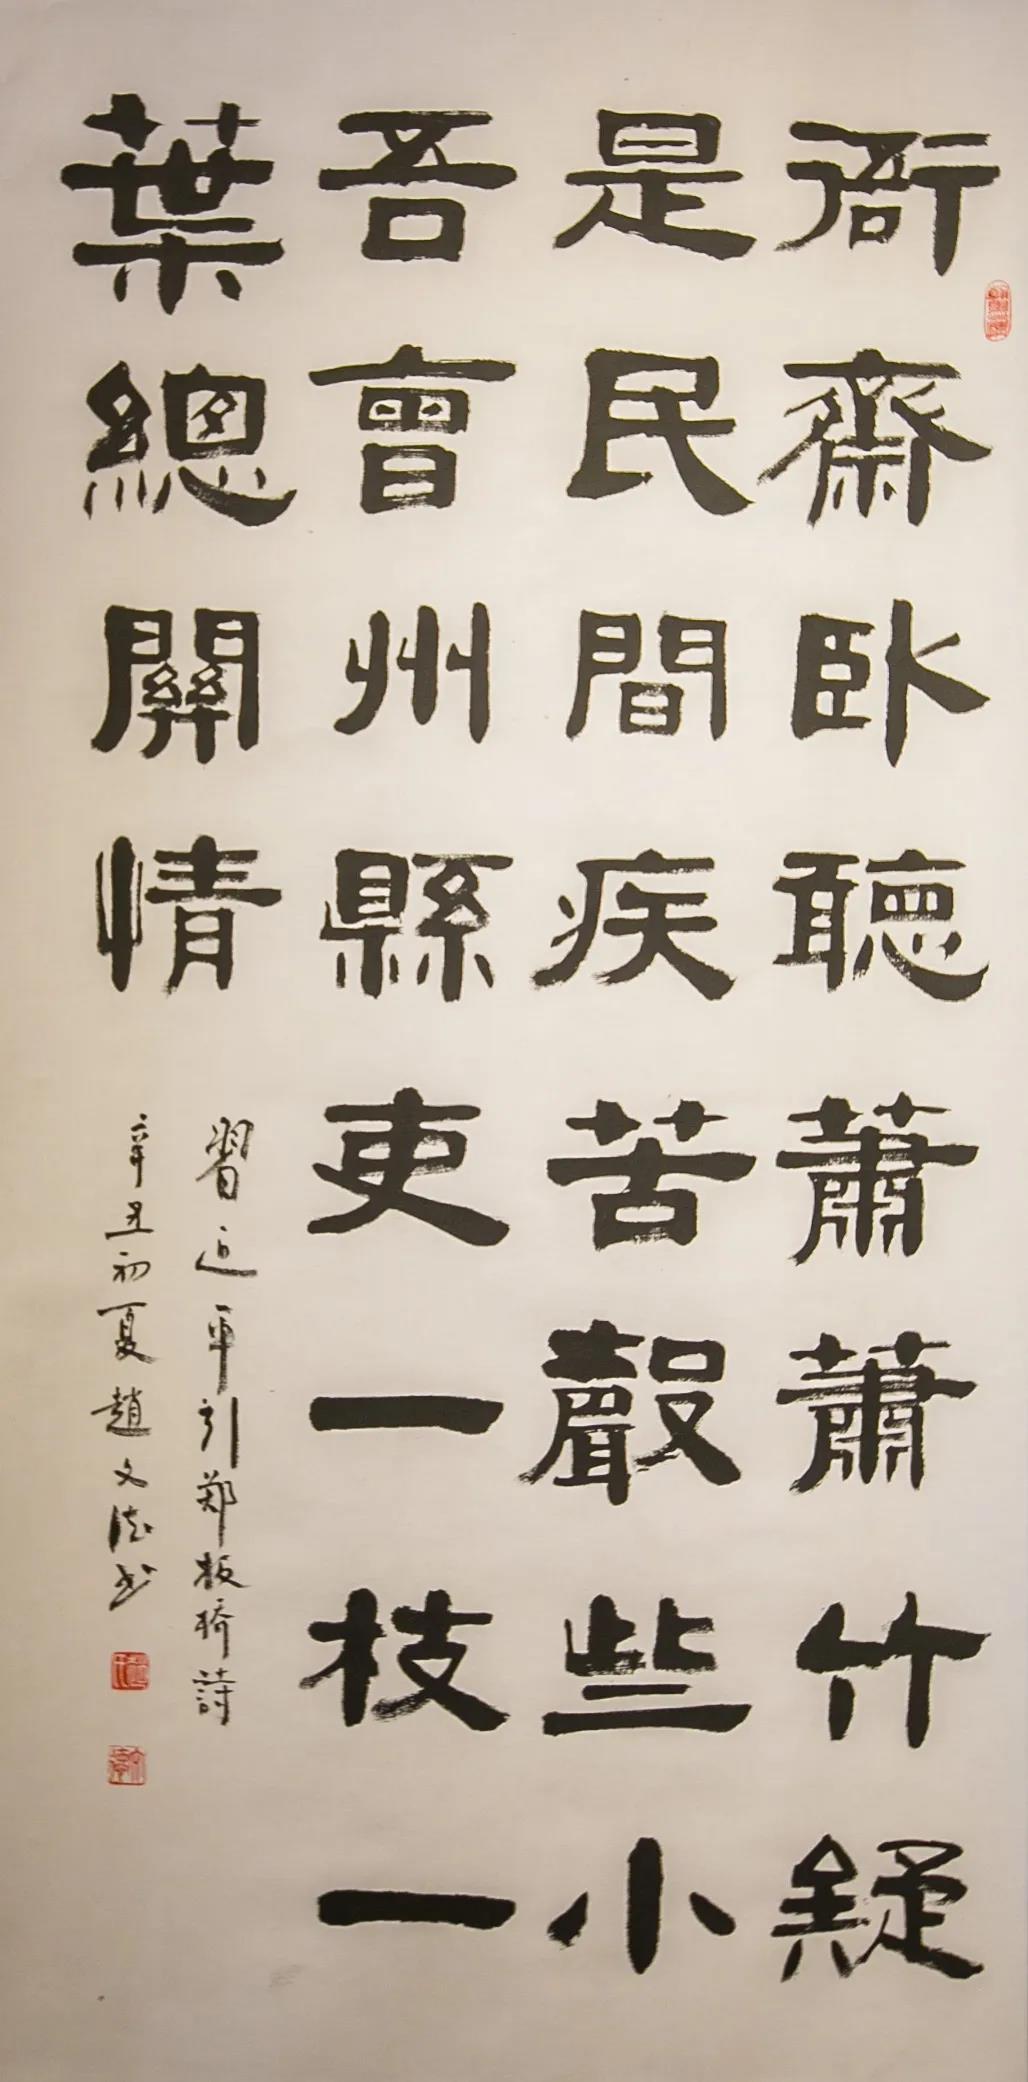 衙齋卧聽蕭蕭竹疑
是民間疾苦聲些小
吾曹州縣吏一枝一
葉總關情
習近平引郑板橋詩
辛丑初夏趙文德书